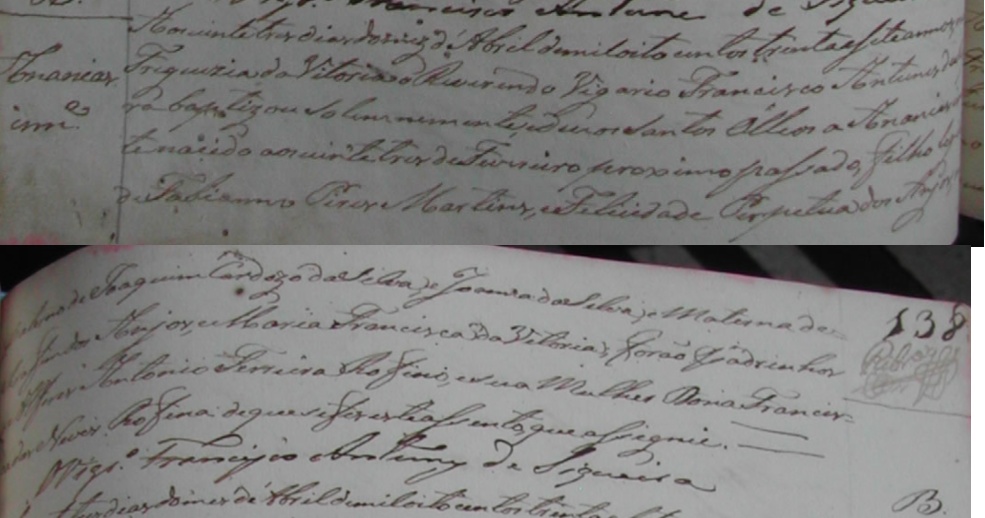 Vigr.º Francisco Antunes de Siqueira
Aos vinte tres dias do mez d'Abril de mil oito centos trinta e sete annos
Ananias
Freguezia da Vitoria o Reverendo Vigario Francisco Antunes da
inn.e
ra baptizou solemnemente e deu os Santos Olleos a Ananias
te nacido aos vinte tres de Fevereiro proximo passado, filho
de Fabianno Pires Martins, e Felicidade Perpetua dos Anjos
de Joaquim Cardozo da Silva, e Joanna da Silva, e Materna de
138
Anjos, e Maria Francisca da Vitoria, forão Padrinhos
Alferes Antonio Ferreira Rofino, e sua Mulher Dona Francis-
das Neves Rofina. de que se fes este assento que assignei.
Vigr.º Francisco Antunes de Siqueira
tres dias do mez de Abril de mil oito centos trinta e
B.